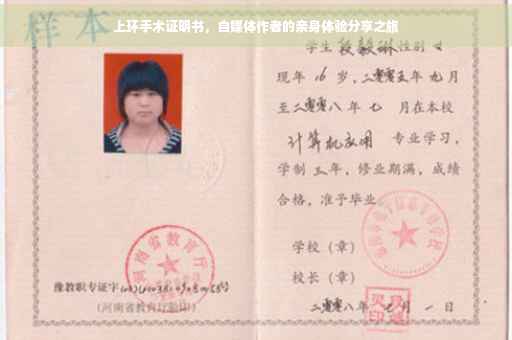 上环手术证明书，自媒体作者的亲身体验分享之旅
样本
学生段毅琳性别女
现年16岁，二零零五年九月
至二零零八年七月在本校
计算机应用 专业学习，
学制三年，修业期满，成绩
合格，准予毕业。
学校（章）
校长（章）
二零零八年 月一日
河南省教育厅
豫教职专证字
（河南省教育厅验印）